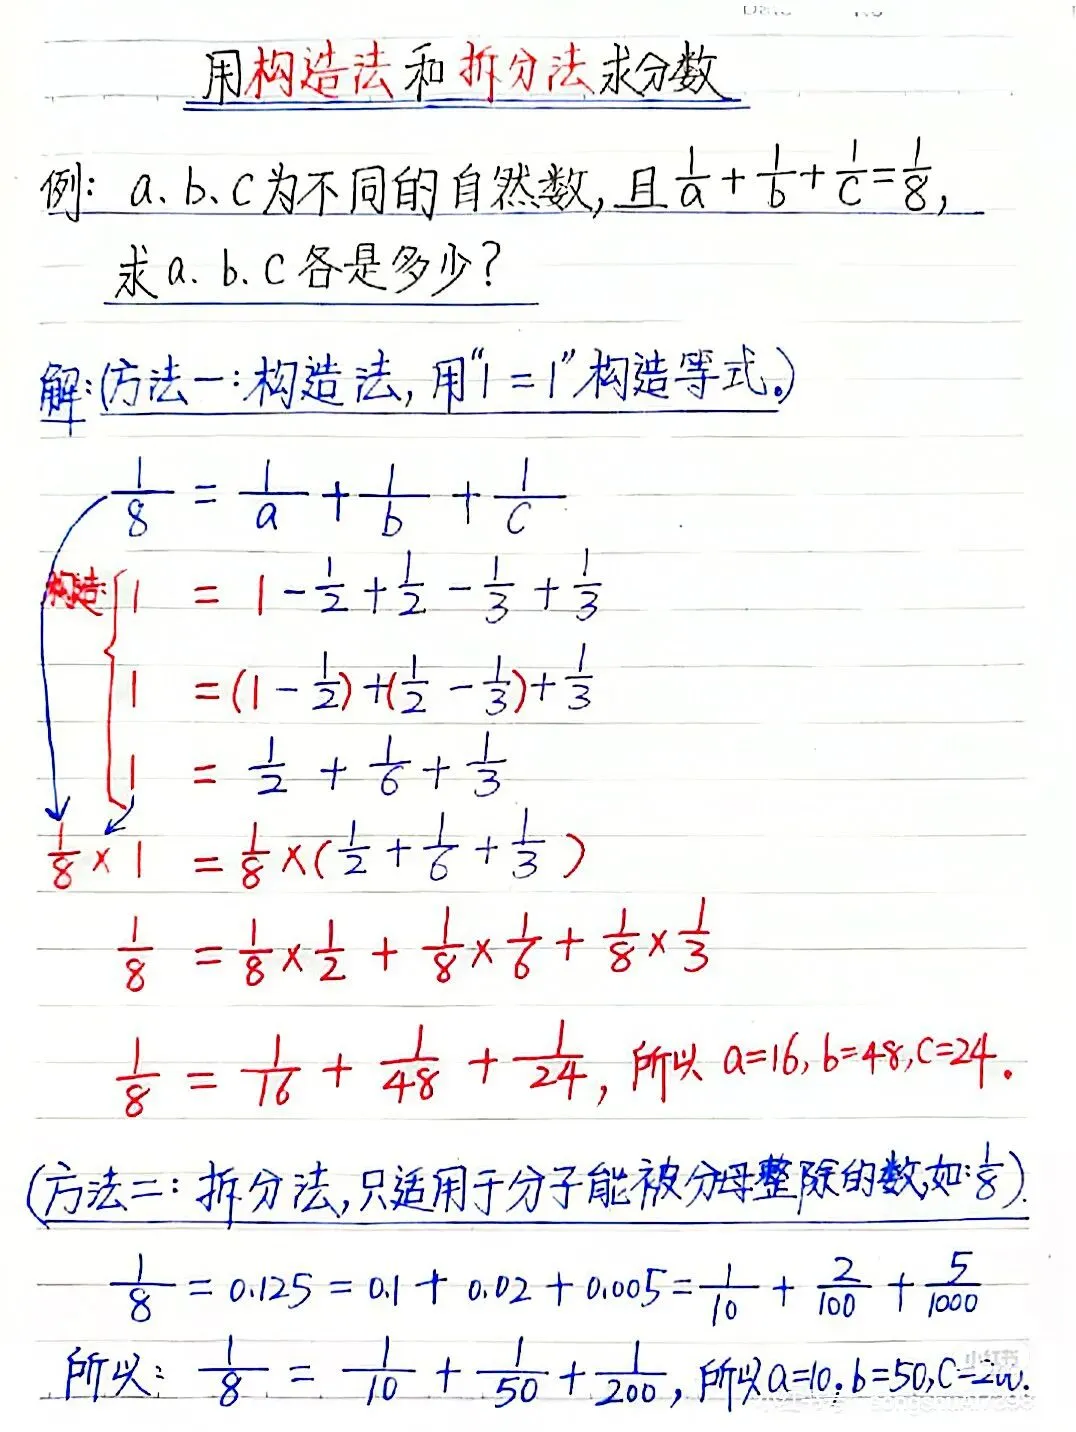 用构造法和拆分法求分数
例: a.b、c为不同的自然数,且1/a+1/b+1/c=1/8,
求a.b.c各是多少?
解:(方法一:构造法,用“1=1”构造等式。)
1/8 = 1/a + 1/b + 1/c
构造: 1 = 1-1/2+1/2-1/3+1/3
1 =(1-1/2)+(1/2-1/3)+1/3
1 = 1/2 + 1/6 + 1/3
1/8×1 = 1/8×(1/2+1/6+1/3)
1/8 = 1/8×1/2 + 1/8×1/6 + 1/8×1/3
1/8 = 1/16 + 1/48 + 1/24, 所以 a=16,b=48,c=24.
(方法二:拆分法,只适用于分子能被分母整除的数,如:1/8).
1/8 = 0.125 = 0.1 + 0.02 + 0.005 = 1/10 + 2/100 + 5/1000
所以: 1/8 = 1/10 + 1/50 + 1/200, 所以a=10.b=50,c=200.
小红书